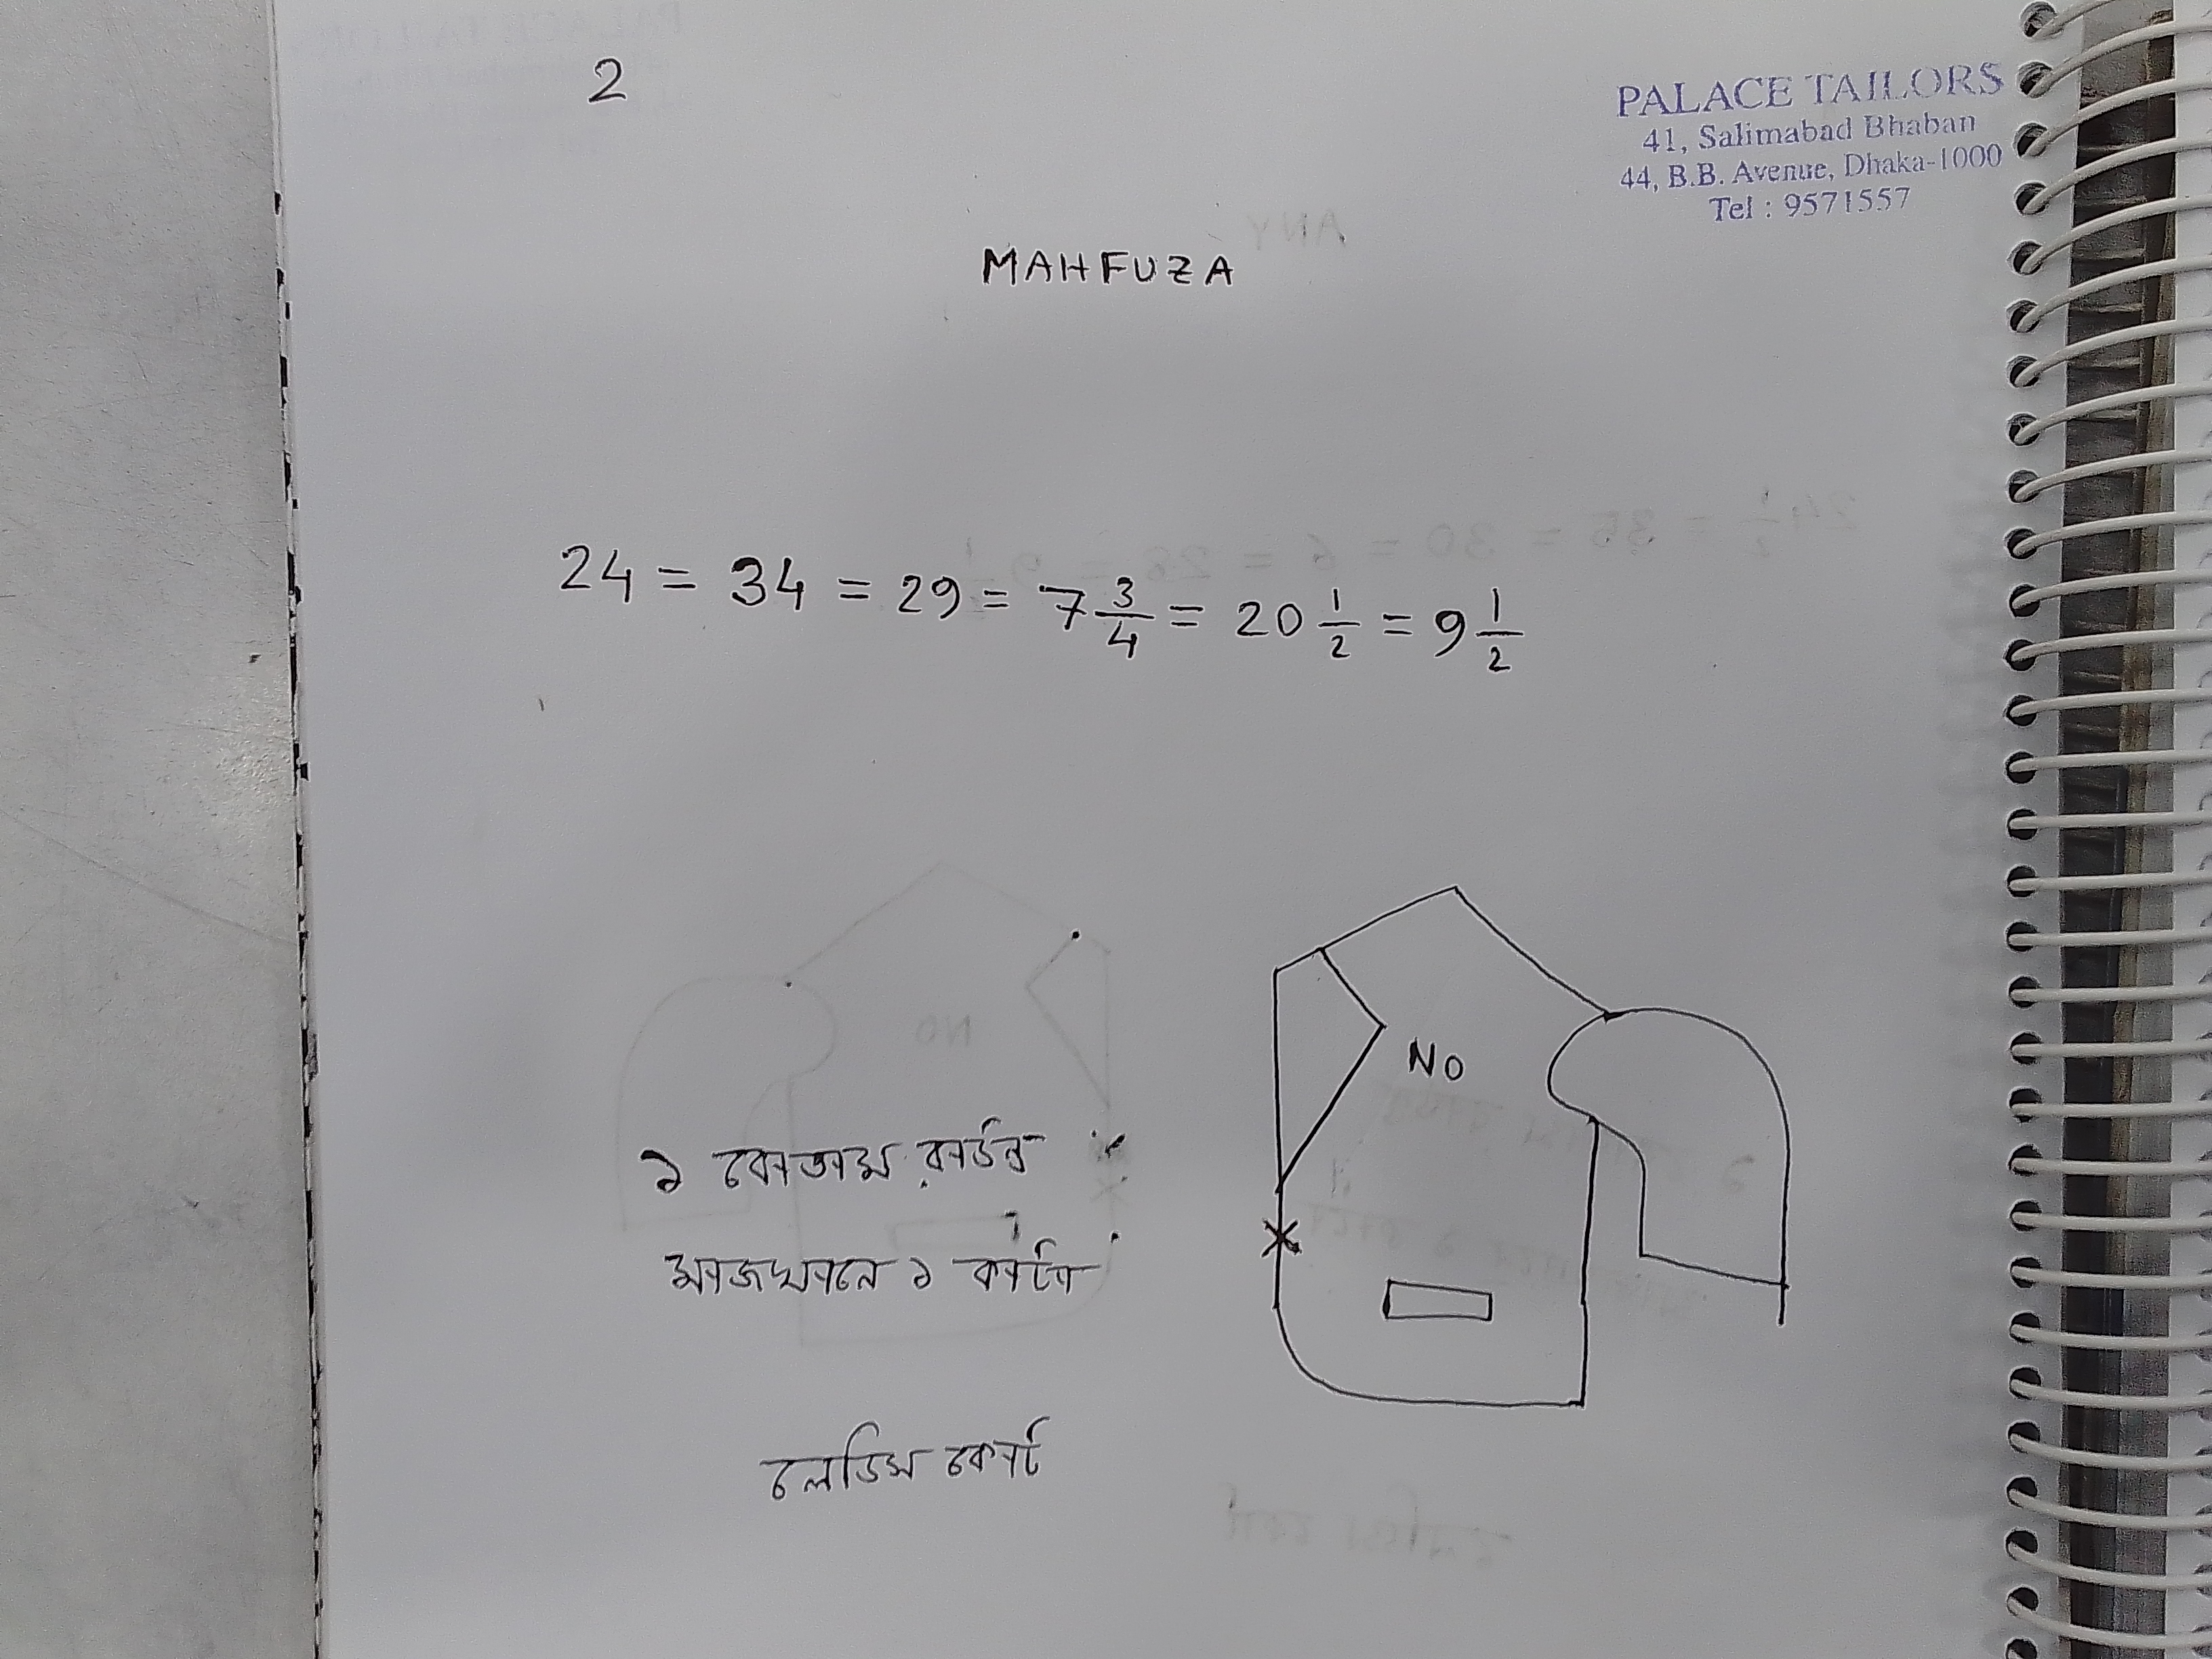 2
PALACE TAILORS
41, Salimabad Bhaban
44, B.B. Avenue, Dhaka-1000
Tel : 9571557
MAHFUZA
24 = 34 = 29 = 7 3/4 = 20 1/2 = 9 1/2
NO
১ বোতাম রাউন্ড
মাজখানে ১ কাটা
লেডিস কোট